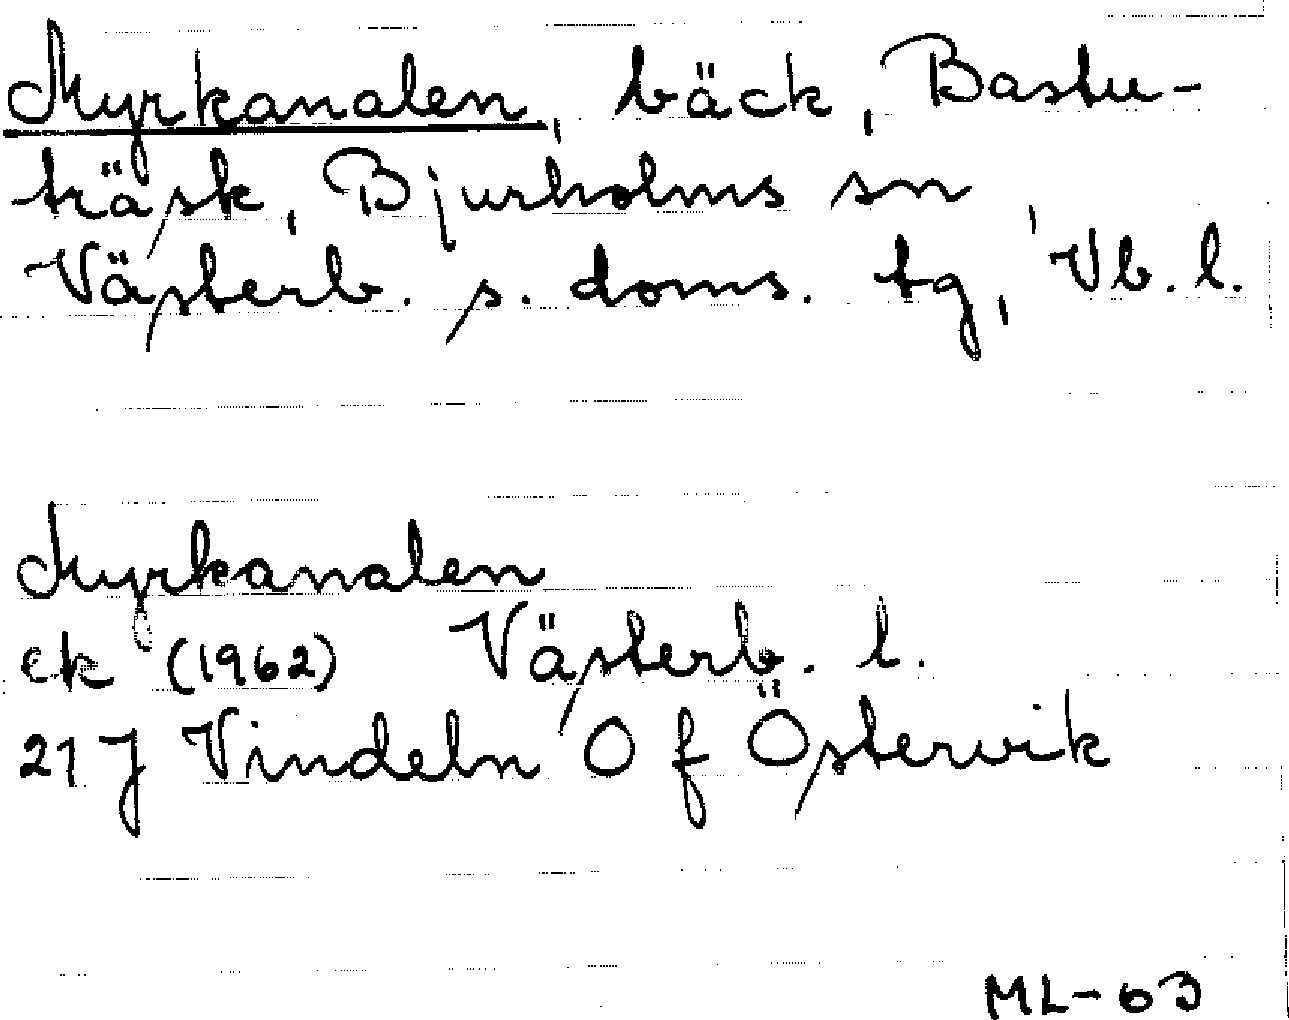 Myrkanalen, bäck, Bastu-
träsk, Bjurholms sn,
Västerb. s. doms. tg, Vb. l.
Myrkanalen
ek (1962) Västerb. l.
21 J Vindeln O f Östervik
ML-63